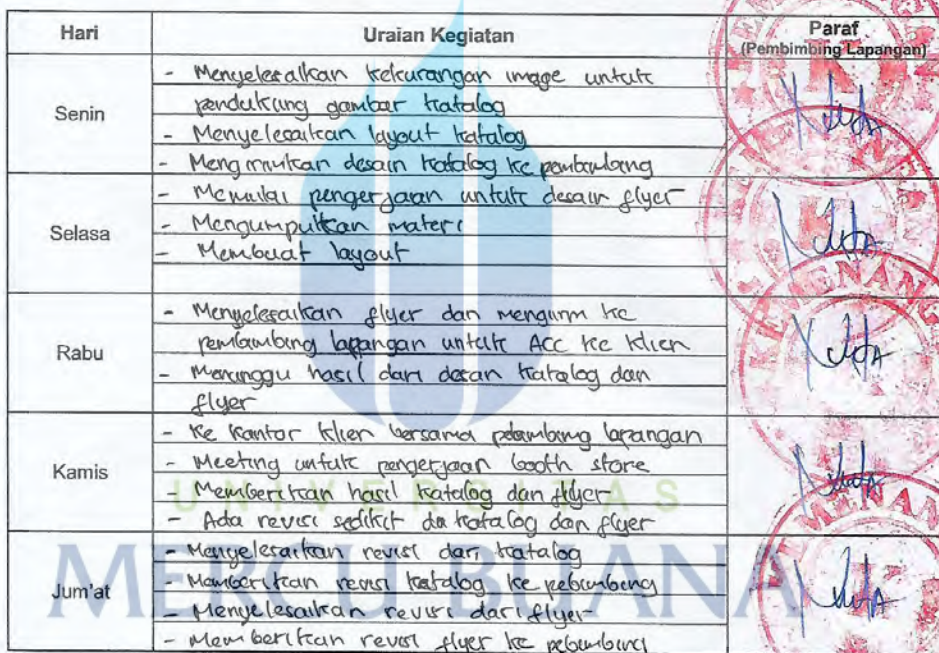 Hari Uraian Kegiatan Paraf
(Pembimbing Lapangan)
Senin
- Menyelesaikan kekurangan image untuk
pendukung gambar katalog
- Menyelesaikan layout katalog
- Mengirimkan desain katalog ke pembimbing
Selasa
- Memulai pengerjaan untuk desain flyer
- Mengumpulkan materi
- Membuat layout
Rabu
- Menyelesaikan flyer dan mengirim ke
pembimbing lapangan untuk ACC ke klien
- Menunggu hasil dari desain katalog dan
flyer
Kamis
- Ke kantor klien bersama pembimbing lapangan
- Meeting untuk pengerjaan booth store
- Memberikan hasil katalog dan flyer
- Ada revisi sedikit di katalog dan flyer
UNIVERSITAS
Jum'at
- Menyelesaikan revisi dari katalog
- Memberikan revisi katalog ke pebimbing
- Menyelesaikan revisi dari flyer
- Memberikan revisi flyer ke pebimbing
MERCU BUANA